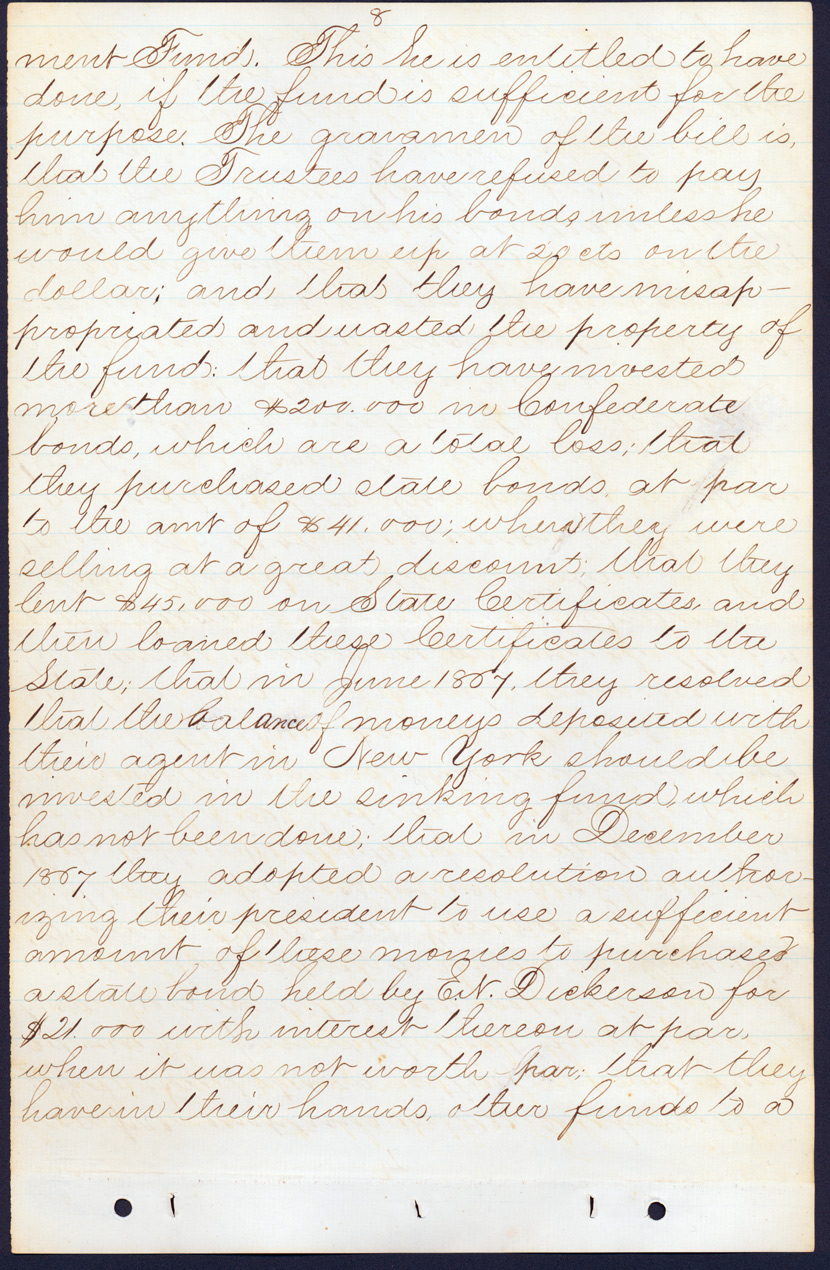 8
ment Fund. This he is entitled to have
done, if the fund is sufficient for the
purpose. The gravamen of the bill is,
that the Trustees have refused to pay
him anything on his bonds, unless he
would give them up at 20 cts on the
dollar; and, that they have misap-
propriated and wasted the property of
the fund: that they have invested
more than $200.000 in Confederate
bonds, which are a total loss; that
they purchased state bonds, at par
to the amt of $41.000; when they were
selling at a great discount; that they
lent $45,000 on State Certificates, and
then loaned these Certificates to the
State; that in June 1867, they resolved
that the balance of moneys deposited with
their agent in New York should be
invested in the sinking fund, which
has not been done; that in December
1867 they adopted a resolution author-
izing their president to use a sufficient
amount of these monies to purchase
a state bond held by E.N. Dickerson for
$21.000 with interest thereon at par,
when it was not worth par; that they
have in their hands, other funds to a